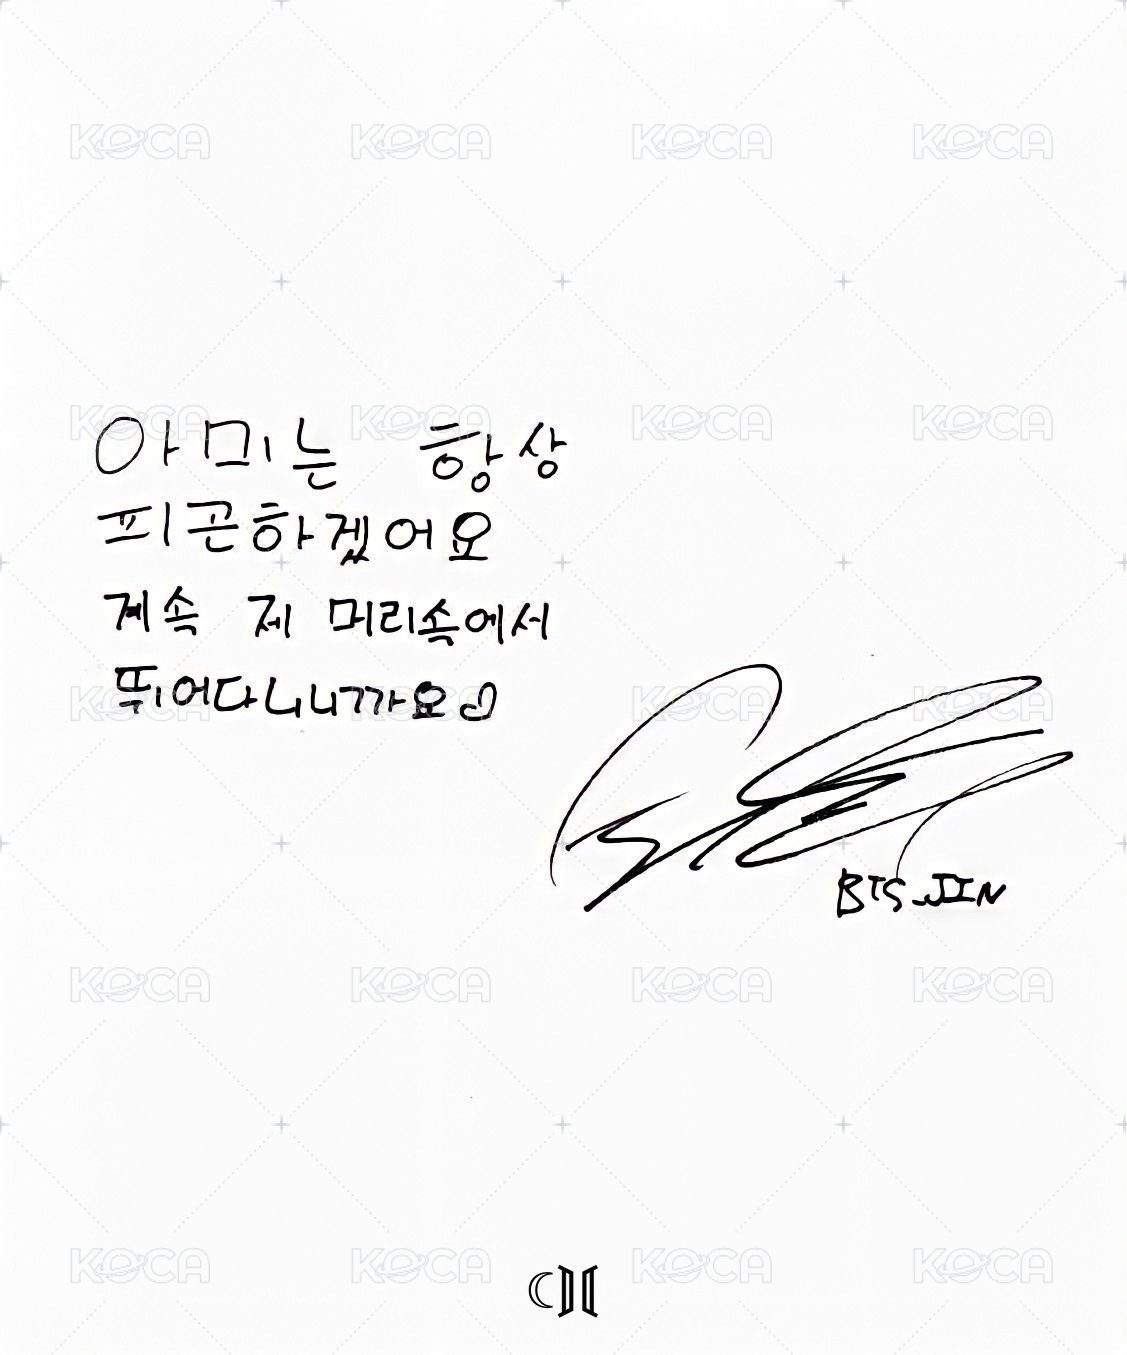 KOCA KOCA KOCA KOCA
KOCA KOCA KOCA KOCA
아미는 항상
피곤하겠어요
계속 제 머리속에서
뛰어다니니까요
KOCA KOCA KOCA KOCA
BTS JIN
KOCA KOCA KOCA KOCA
KOCA KOCA KOCA KOCA